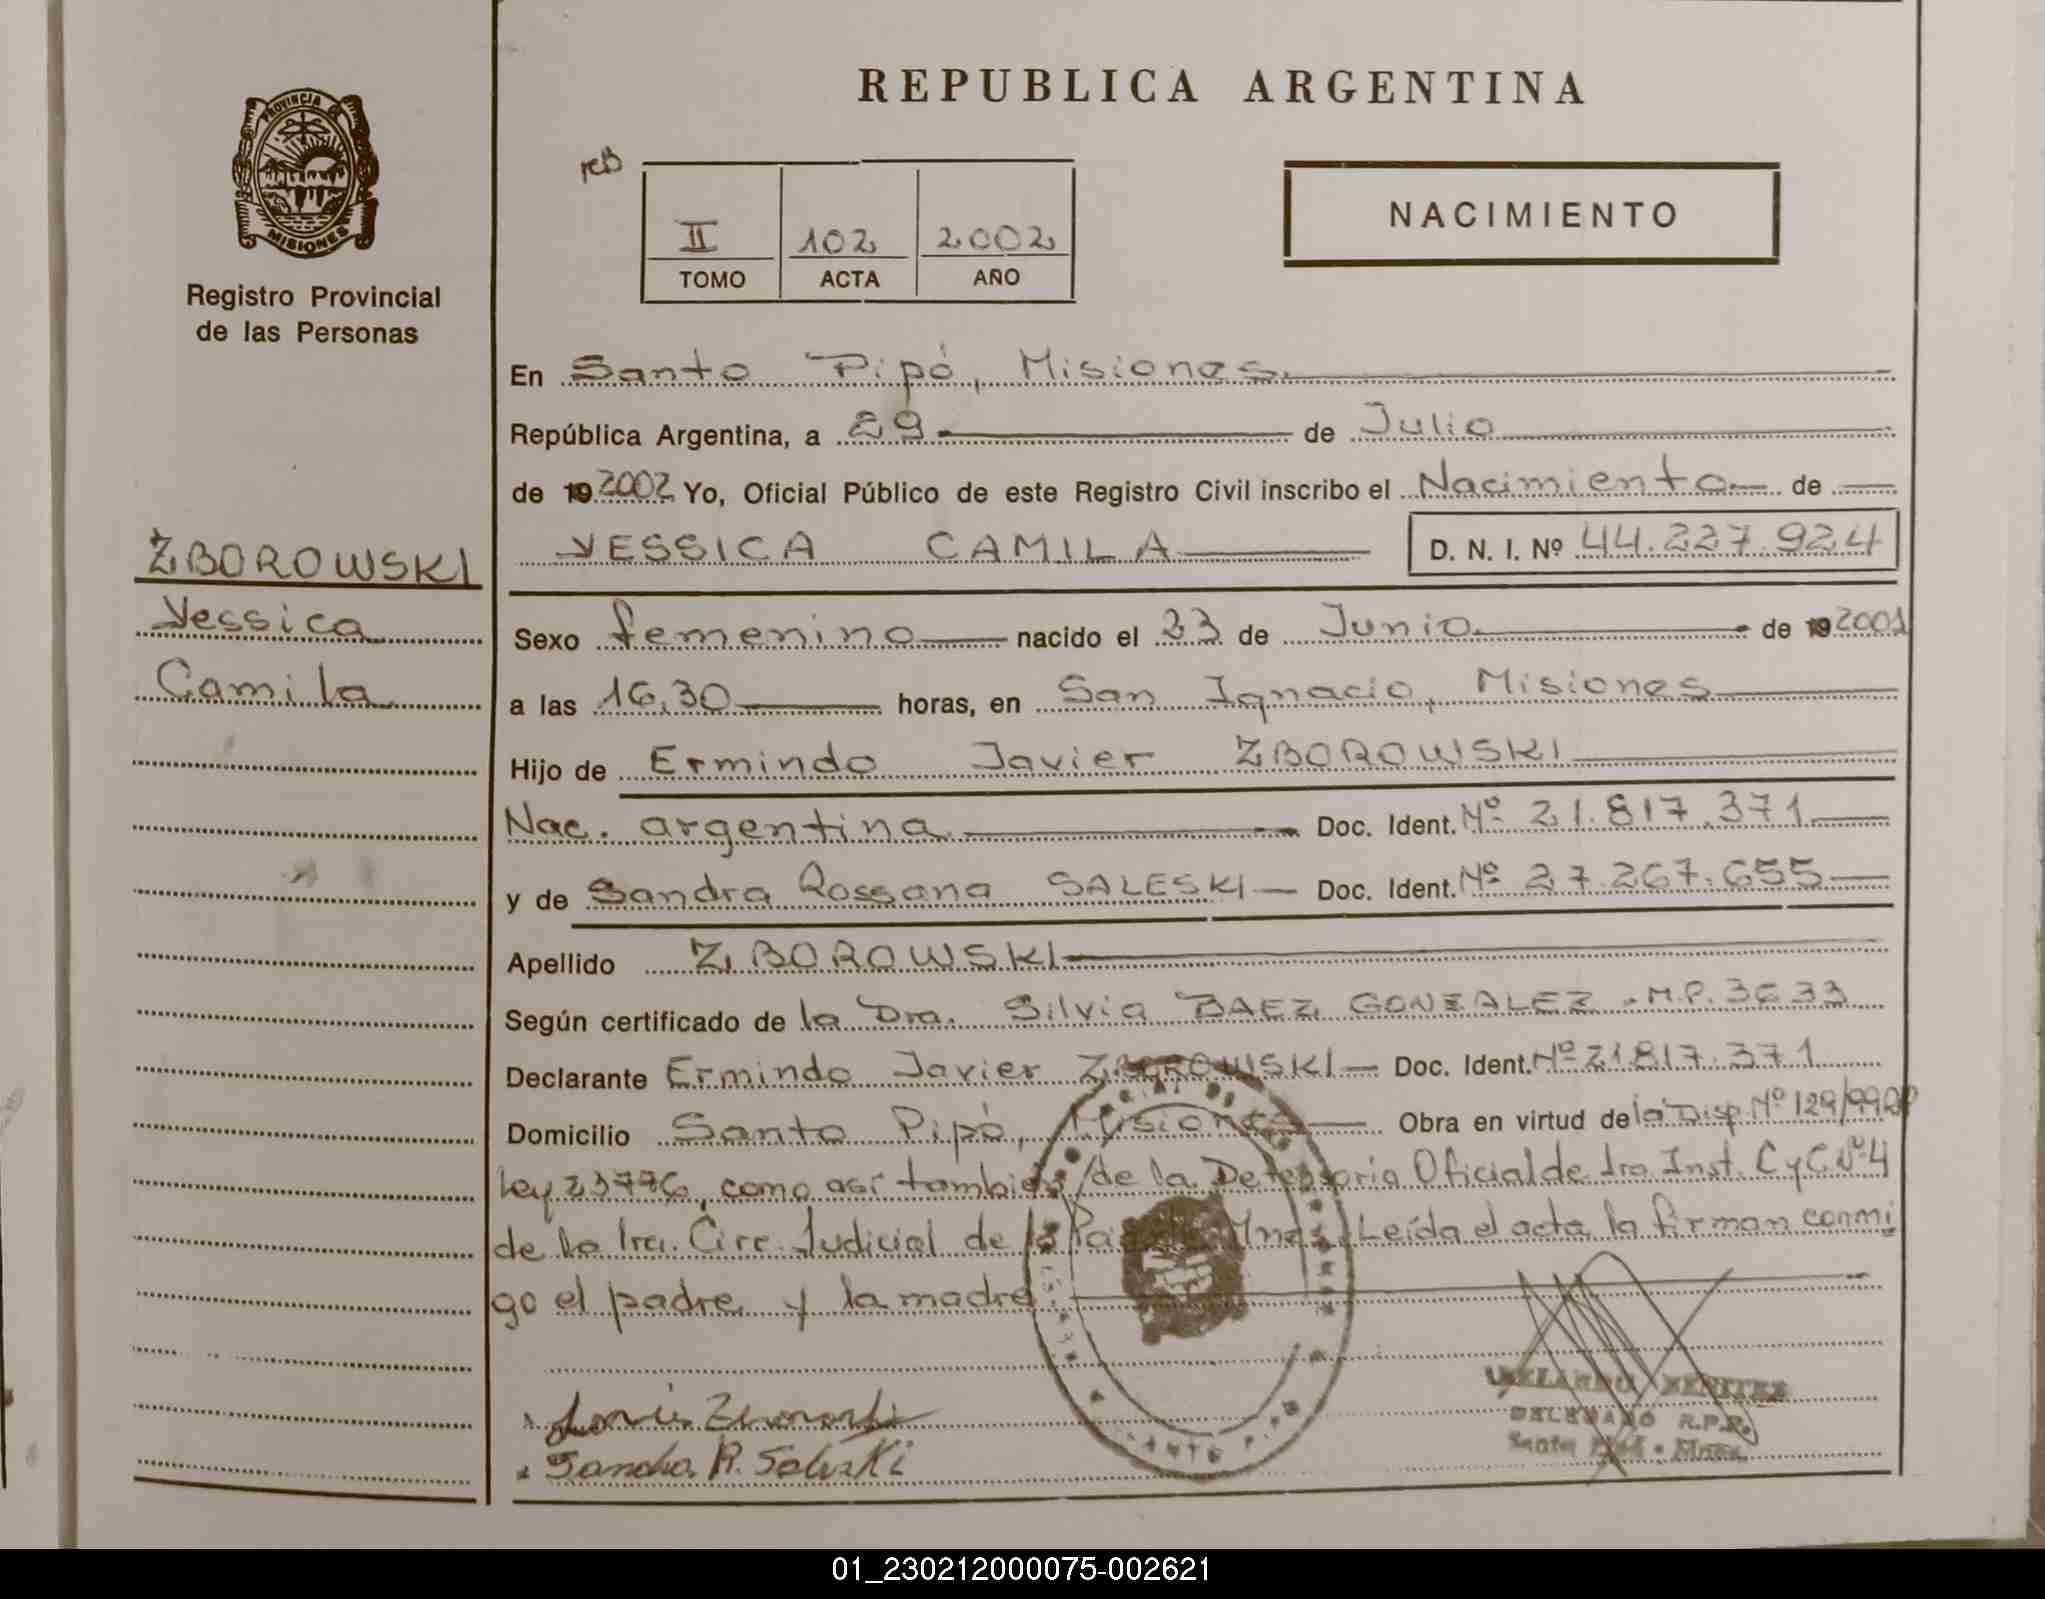 REPUBLICA ARGENTINA
PROVINCIA DE
MISIONES
Registro Provincial
de las Personas
II 102 2002
TOMO ACTA AÑO
NACIMIENTO
ZBOROWSKI
Yessica
Camila
En Santo Pipó, Misiones.
República Argentina, a 29 de Julio
de 19 2002 Yo, Oficial Público de este Registro Civil inscribo el Nacimiento de
YESSICA CAMILA D. N. I. Nº 44.227.924
Sexo femenino nacido el 23 de Junio de 19 2001
a las 16,30 horas, en San Ignacio, Misiones
Hijo de Ermindo Javier ZBOROWSKI
Nac. argentina Doc. Ident. Nº 21.817.371
y de Sandra Rossana SALESKI Doc. Ident. Nº 27.267.655
Apellido ZBOROWSKI
Según certificado de la Dra. Silvia BAEZ GONZALEZ - M.P. 3633
Declarante Ermindo Javier ZBOROWSKI Doc. Ident. Nº 21.817.371
Domicilio Santo Pipó, Misiones Obra en virtud de la Disp. Nº 129/99
ley 23776, como así también de la Defensoría Oficial de 1ra. Inst. C y C Nº 4
de la 1ra. Circ. Judicial de la Leída el acta la firman conmi
go el padre y la madre.
Sandra R. Saleski
DELEGADO R.P.P.
Santo Pipó - Mnes.
01_230212000075-002621